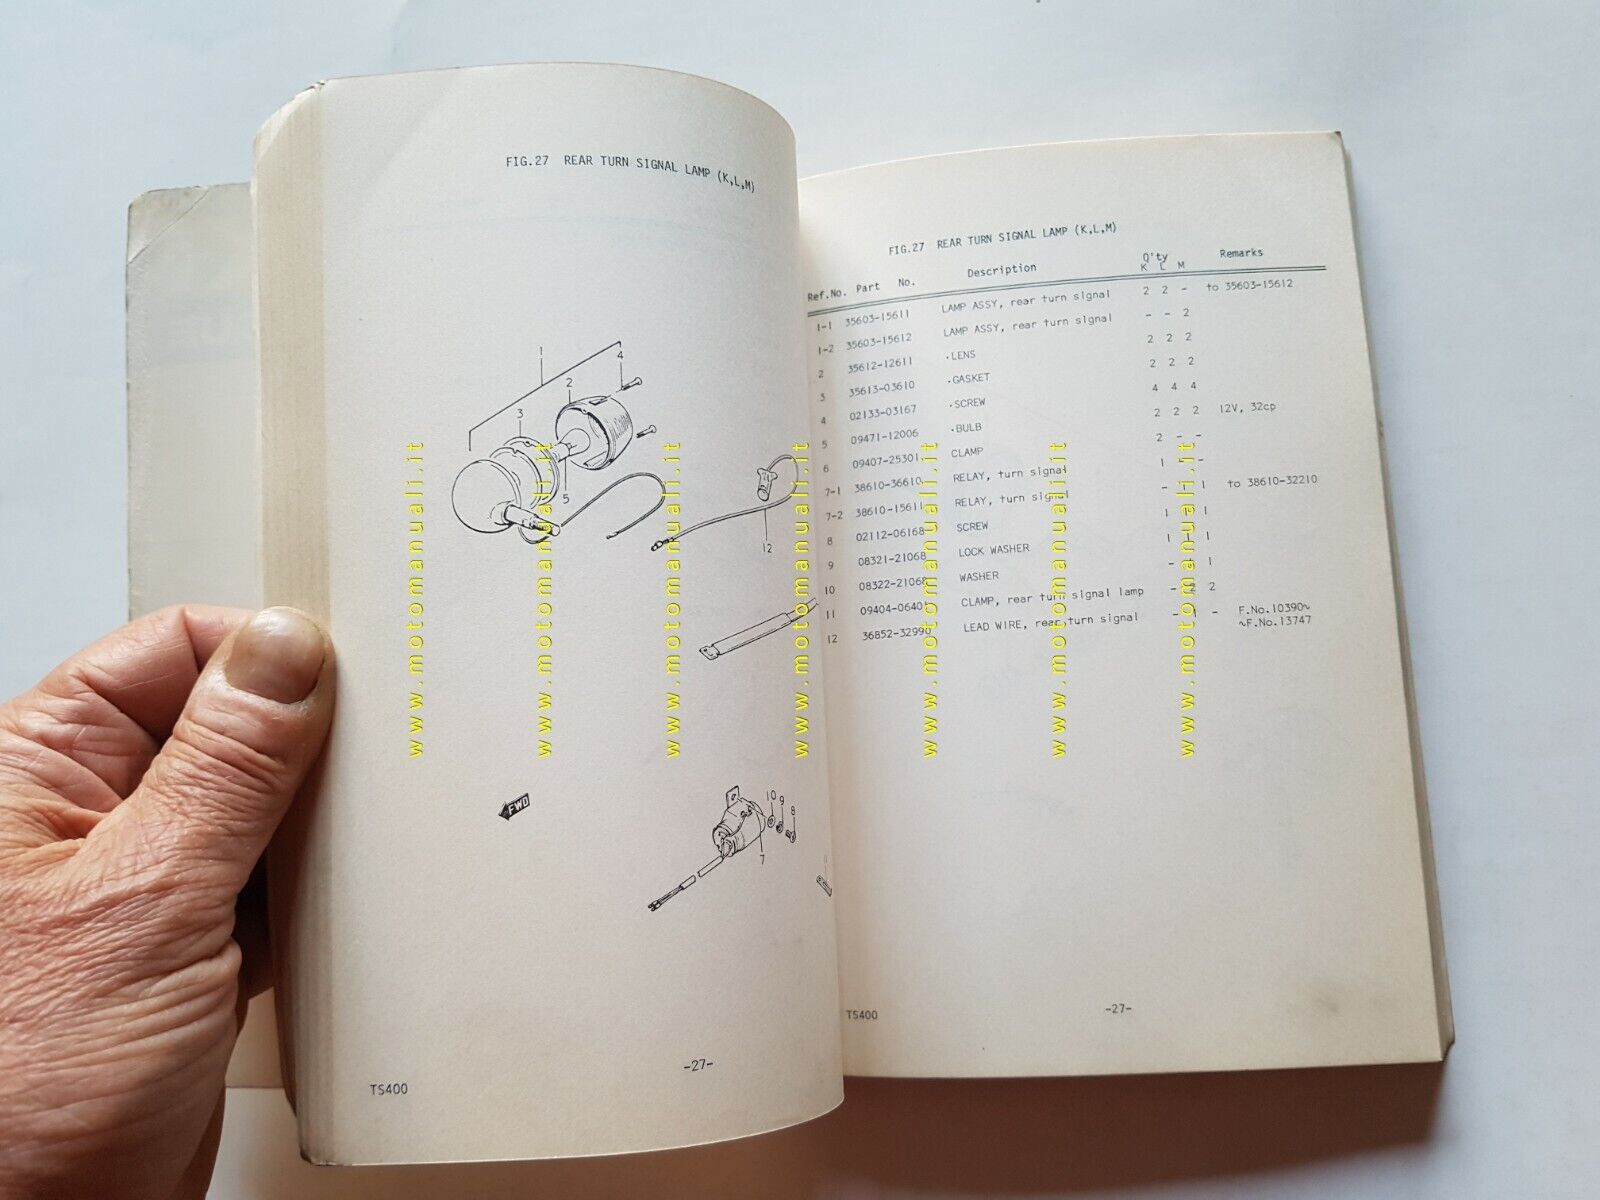 FIG.27 REAR TURN SIGNAL LAMP (K,L,M)
1
4
2
3
5
12
FWD
10
9
8
7
11
-27-
TS400
FIG.27 REAR TURN SIGNAL LAMP (K,L,M)
Ref.No. Part No. Description Q'ty Remarks
K L M
1-1 35603-15611 LAMP ASSY, rear turn signal 2 2 - to 35603-15612
1-2 35603-15612 LAMP ASSY, rear turn signal - - 2
2 35612-12611 ·LENS 2 2 2
3 35613-03610 ·GASKET 2 2 2
4 02133-03167 ·SCREW 4 4 4
5 09471-12006 ·BULB 2 2 2 12V, 32cp
6 09407-25301 CLAMP 2 - -
7-1 38610-36610 RELAY, turn signal 1 - -
7-2 38610-15611 RELAY, turn signal - 1 1 to 38610-32210
8 02112-06168 SCREW 1 1 1
9 08321-21068 LOCK WASHER 1 1 1
10 08322-21068 WASHER - 1
11 09404-0640 CLAMP, rear turn signal lamp - 2 2
12 36852-32990 LEAD WIRE, rear turn signal - 1 - F.No.10390~
~F.No.13747
TS400
-27-
www.motomanuali.it
www.motomanuali.it
www.motomanuali.it
www.motomanuali.it
www.motomanuali.it
www.motomanuali.it
www.motomanuali.it